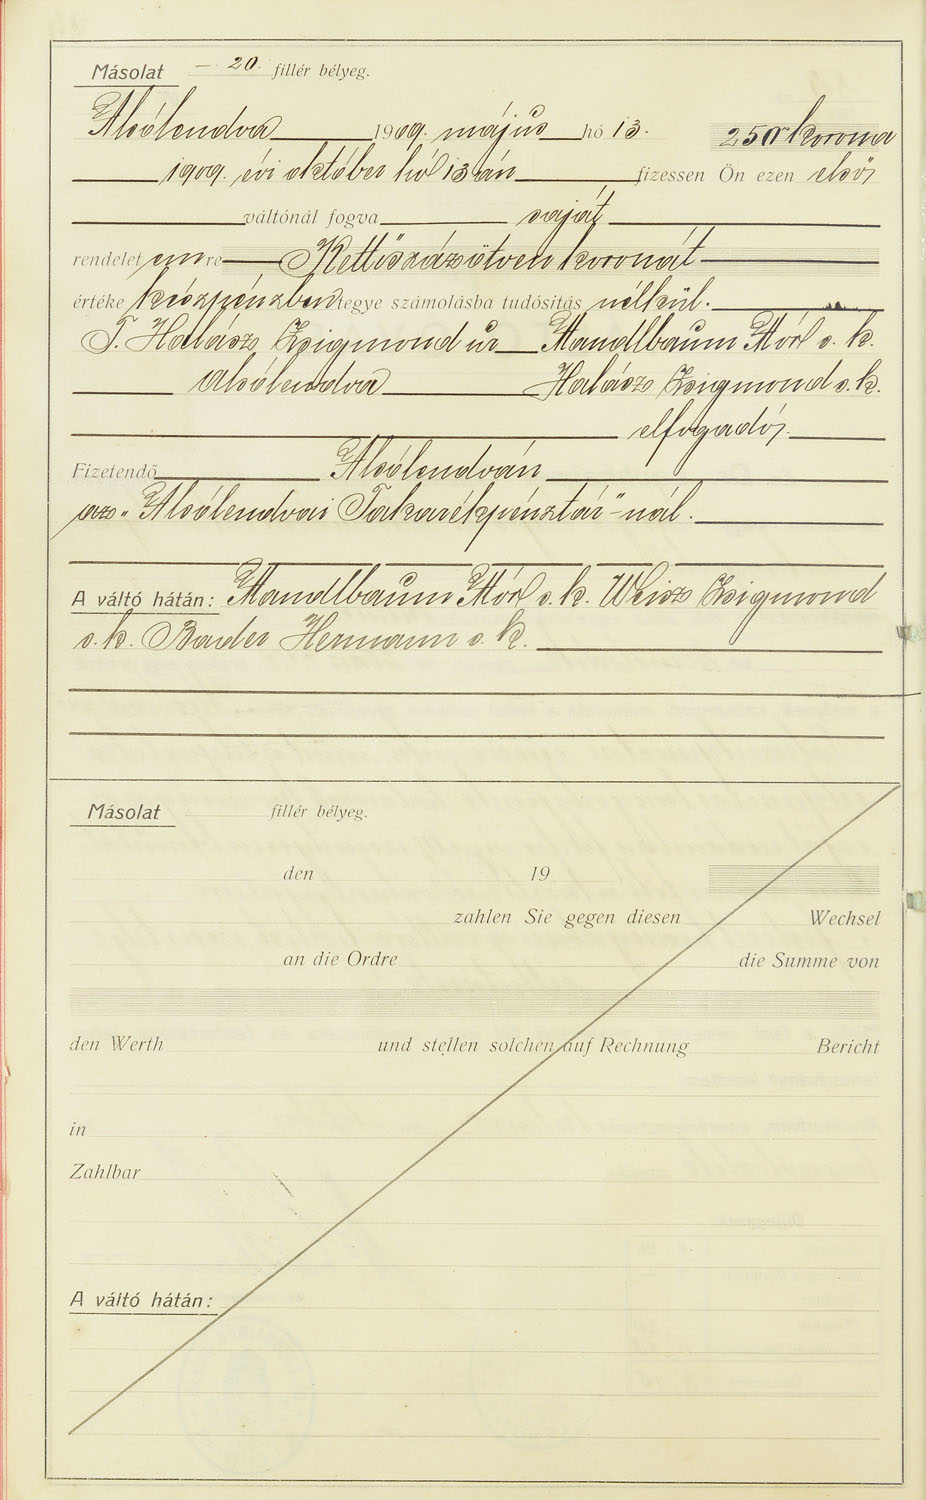 Másolat — 20. fillér bélyeg.
Alsólendva 1909. május hó 13. 250 korona
1909. évi október hó 13 án fizessen Ön ezen első
váltónál fogva saját
rendelet em re Kettőszázötven koronát
értéke készpénzben tegye számolásba tudósitás nélkül.
T. Halász Zsigmond úr Mandlbaum Mór s. k.
Alsólendva Halász Zsigmond s. k.
elfogadó.
Fizetendő Alsólendván
az „Alsólendvai Takarékpénztár"-nál.
A váltó hátán: Mandlbaum Mór s. k. Weisz Zsigmond
s. k. Bader Hermann s. k.
Másolat fillér bélyeg.
den 19
zahlen Sie gegen diesen Wechsel
an die Ordre die Summe von
den Werth und stellen solchen auf Rechnung Bericht
in
Zahlbar
A váltó hátán: